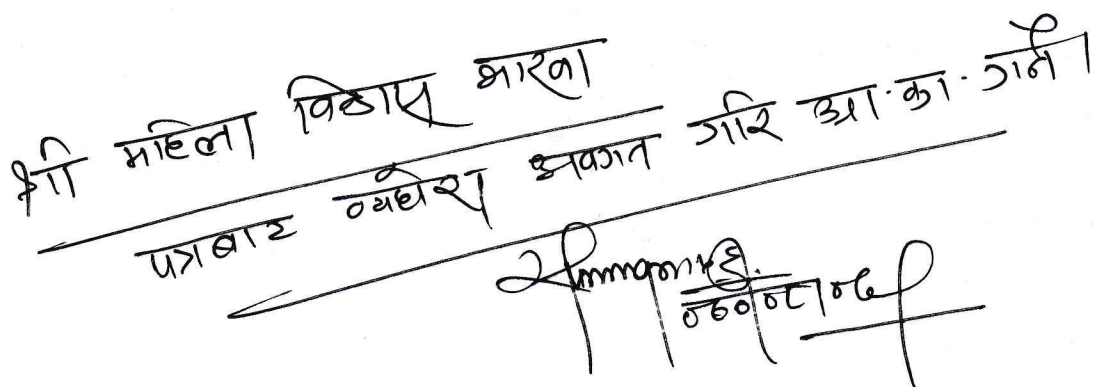 श्री महिला विकास शाखा
पत्रबाट व्यहोरा अवगत गरि आ.का. गर्ने।